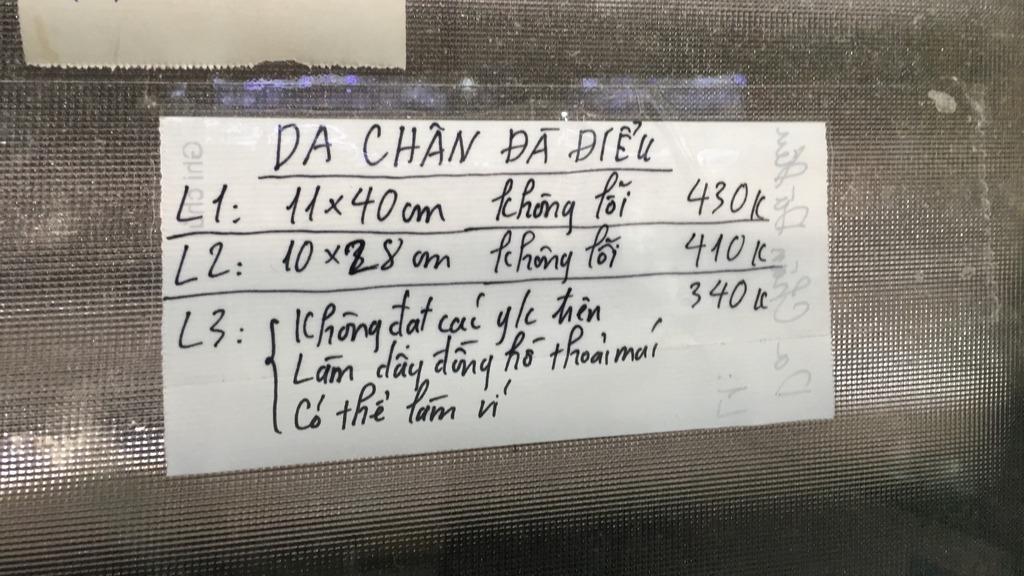 DA CHÂN ĐÀ ĐIỂU
L1: 11x40cm không lỗi 430k
L2: 10x28cm không lỗi 410k
L3: Không đạt các y/c trên 340k
Làm dây đồng hồ thoải mái
Có thể làm ví
Ghi chú